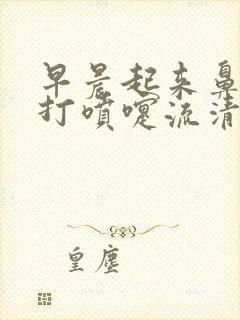 早晨起来鼻
打噴嚏流清
皇塵